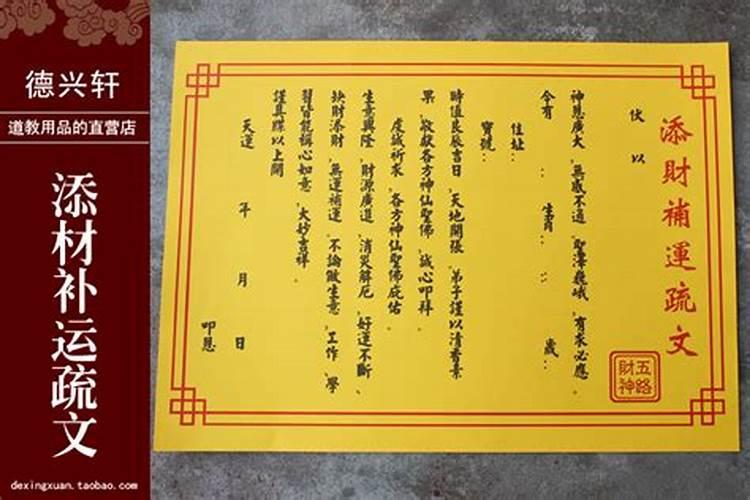 德兴轩
道教用品的直营店
添材补运疏文
dexingxuan.taobao.com
添財補運疏文
五路
財神
伏以
神恩廣大、無感不通、聖澤巍峨、有求必應。
今有 ： 生肖： ： 歲：
住址：
寶號：
時值良辰吉日、天地開張、弟子謹以清香素
果、敬獻各方神仙聖佛、誠心叩拜。
虔誠祈求、各方神仙聖佛庇佑。
生意興隆、財源廣進、消災解厄、好運不斷、
缺財添財、無運補運、不論做生意、工作、學
習皆能稱心如意、大妙吉祥。
謹具牒以上聞
天運 年 月 日
叩恩